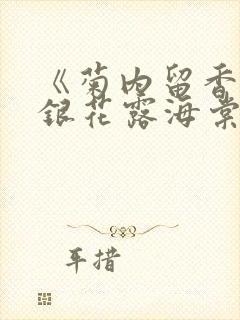 《菊内留香
銀花露海棠
耳措